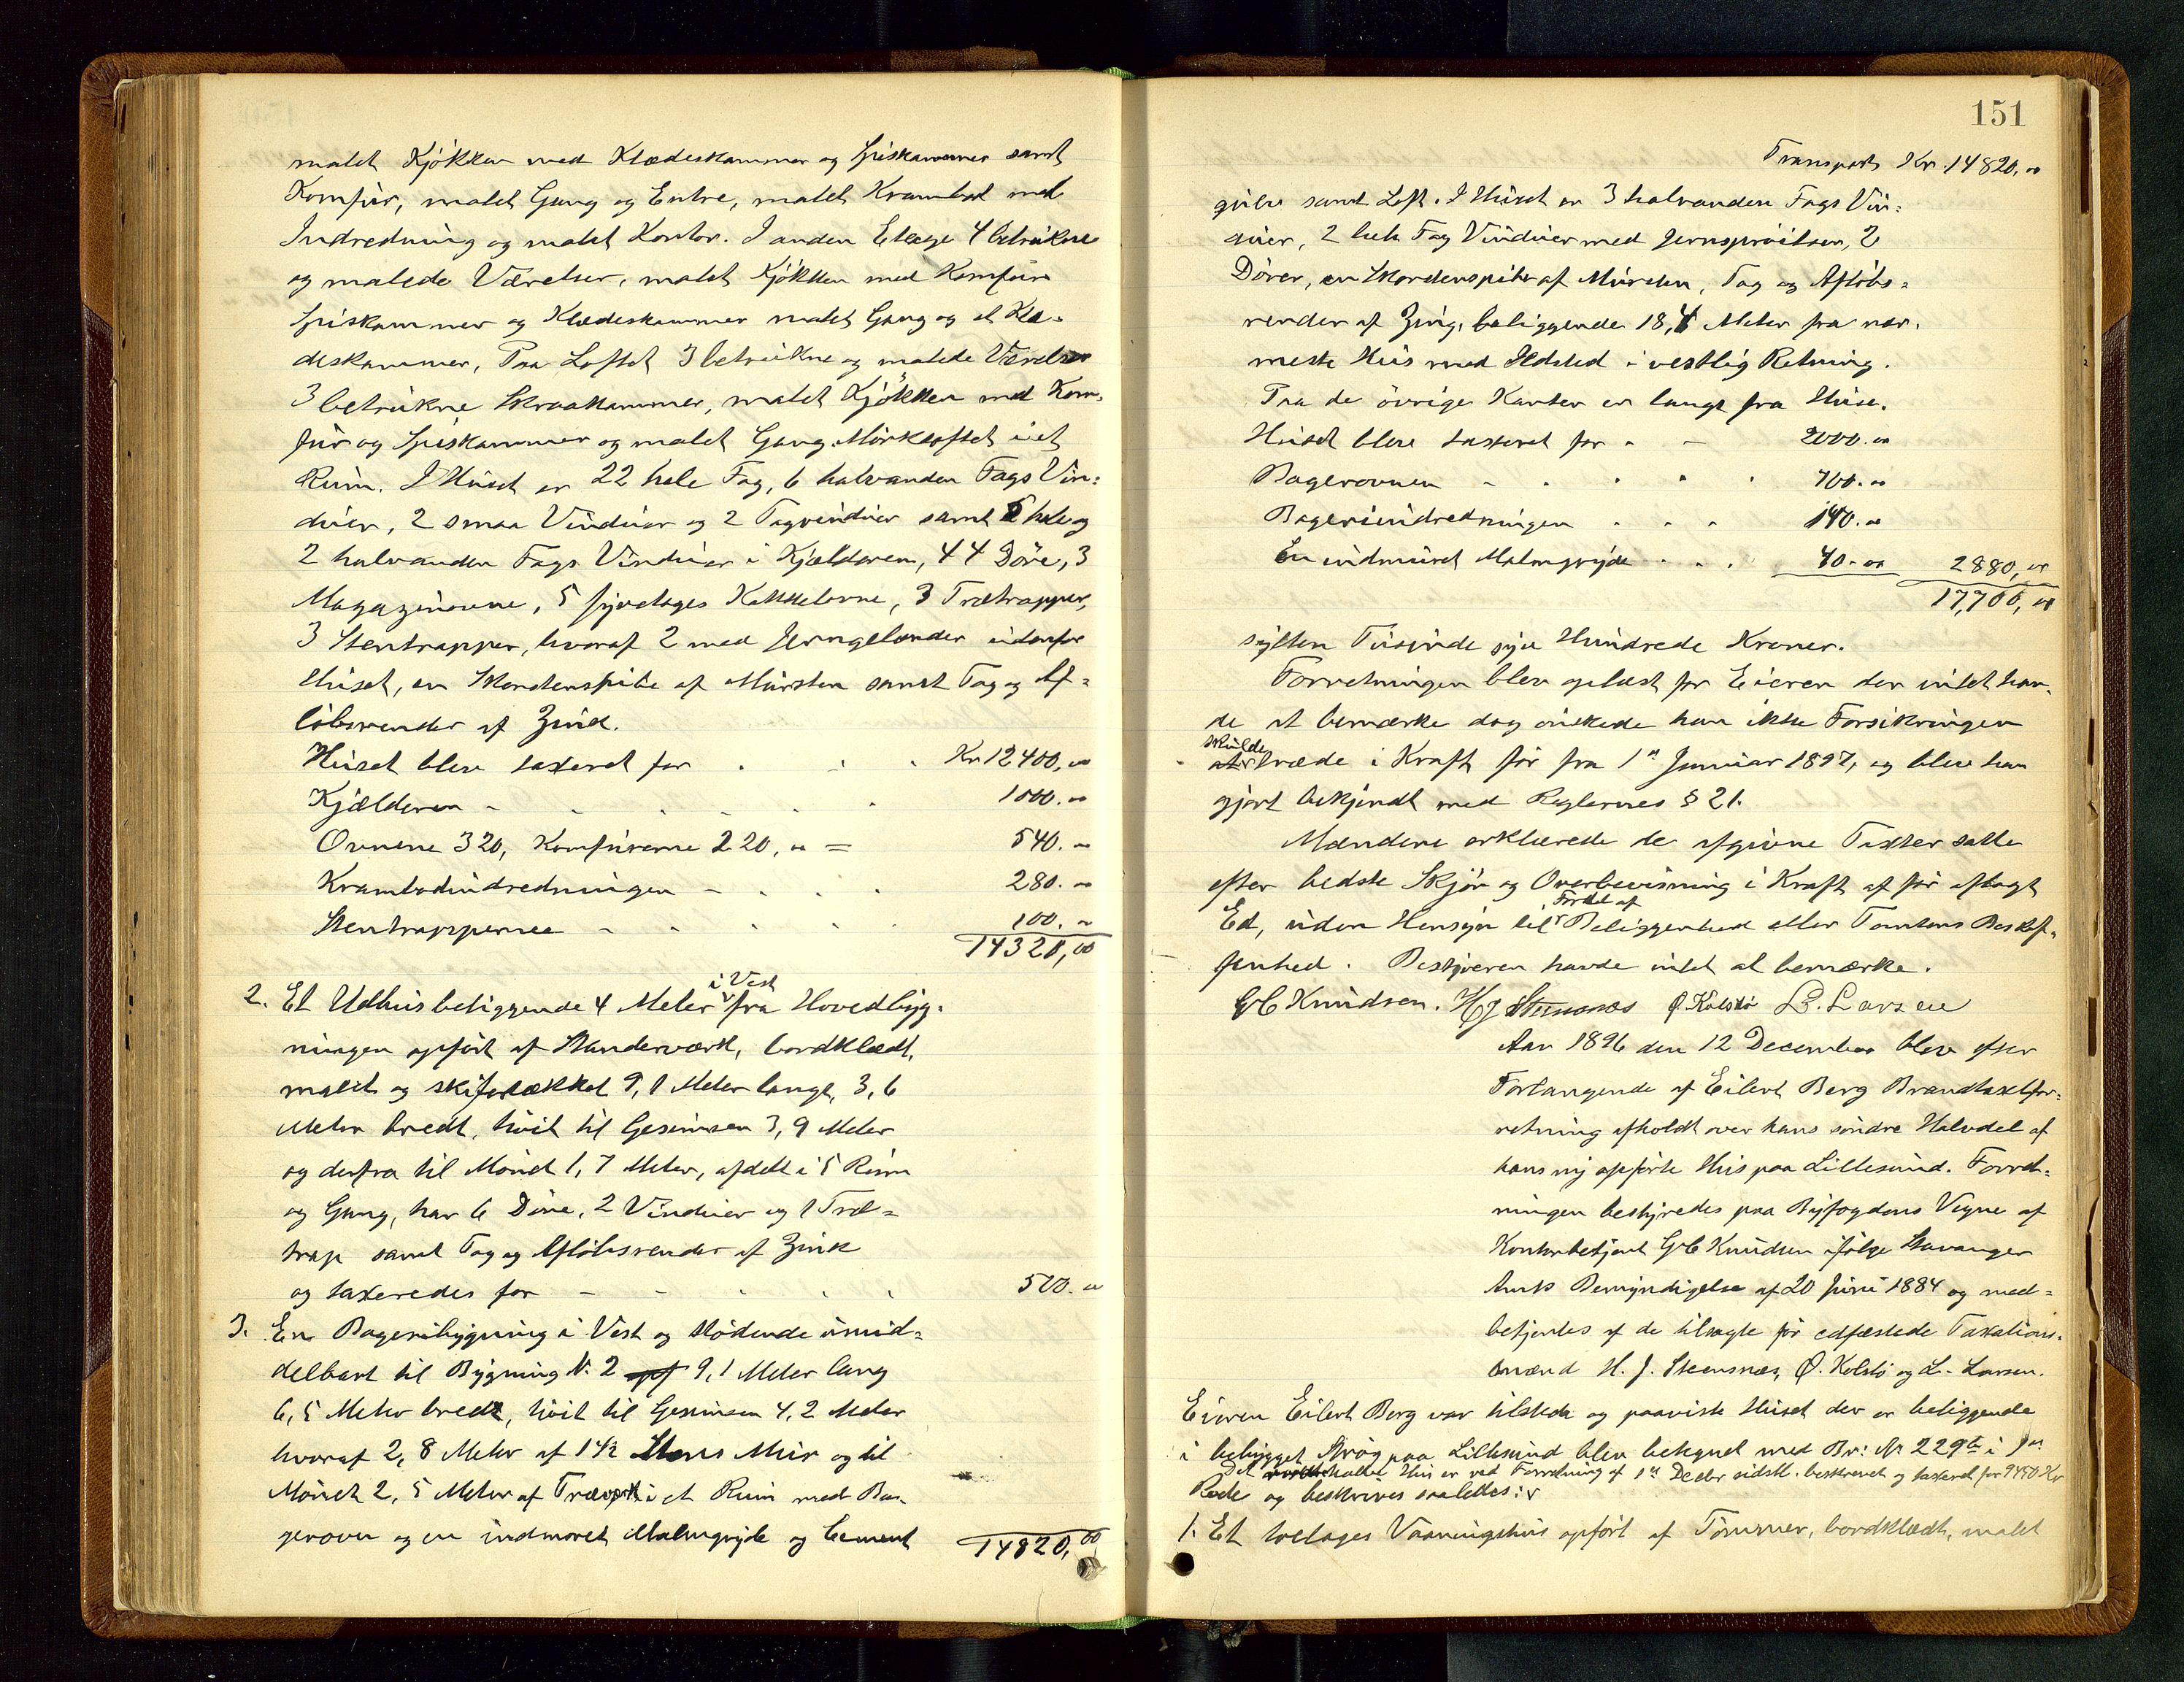 malet Kjökken med Klædeskammer og Spiskammer samt
Komfür, malet Gang og Entre, malet Krambod med
Indredning og malet Kontor. I anden Etage 4 betrukne
og malede Værelser, malet Kjökken med Komfür
Spiskammer og Klædeskammer malet Gang og et Klæ-
deskammer, Paa Loftet 3 betrukne og malede Værelser
3 betrukne Skraakammer, malet Kjökken med Kom-
für og Spiskammer og malet Gang. Mörkloftet i et
Rum. I Huset er 22 hele Fag, 6 halvanden Fags Vin=
duer, 2 smaa Vinduer og 2 Tagvinduer samt hele og
2 halvanden Fags Vinduer i Kjælderen, 44 Döre, 3
Magazinovne, 5 fyretages Kakkelovne, 3 Trætrapper,
3 Stentrapper, hvoraf 2 med Jerngelænder udenfor
Huset, en Skorstenspibe af Mursten samt Tag og Af=
löbsrender af Zink.
Huset blev taxeret for . . . Kr 12400,00
Kjælderen - . . . . . 1000.00
Ovnene 320, Komfurerne 220,00 = 540.00
Krambodindredningen - . . . 280.00
Stentrapperne - . . . . 100.00
14320,00
i Vest
2. Et Udhus beliggende 4 Meter fra Hovedbyg=
ningen opfört af Standerværk, bordklædt,
malet og skifertækket 9,1 Meter langt, 3,6
Meter bredt, höit til Gesimsen 3,9 Meter
og derfra til Mönet 1,7 Meter, afdelt i 5 Rum
og Gang, har 6 Döre, 2 Vinduer og 1 Træ=
trap samt Tag og Aflöbsrender af Zink
og taxeredes for - - . . . 500.00
3. En Bageribygning i Vest og stödende umid=
delbart til Bygning N. 2 9,1 Meter lang
6,5 Meter bredt, höit til Gesimsen 4,2 Meter
hvoraf 2,8 Meter af 1½ Stens Mur og til
Mönet 2,5 Meter af Træværk i et Rum med Ba-
gerovn og en indmuret Malmgryde og Cement
14820,00
151
Transport Kr. 14820,00
gulv samt Loft. I Huset er 3 halvanden Fags Vin=
duer, 2 hele Fag Vinduer med Jernsprösser, 2
Dörer, en Skorstenspibe af Mursten, Tag og Aflöbs=
render af Zing, beliggende 18,4 Meter fra nær-
meste Hus med Ildsted i vestlig Retning.
Fra de övrige Kanter er langt fra Huse.
Huset blev taxeret for . - 2000.00
Bagerovnen - . . . . 700.00
Bageriindredningen . . . 140.00
En indmuret Malmgryde . . . 40.00 2880,00
17,700,00
sytten Tusinde syv Hundrede Kroner.
Forretningen blev oplæst for Eieren der intet hav-
de at bemærke dog önskede han ikke Forsikringen
skulde
træde i Kraft för fra 1st Januar 1897, og blev han
gjort bekjendt med Reglernes § 21.
Mændene erklærede de afgivne Taxter satte
efter bedste Skjön og Overbevisning i Kraft af för aflagt
Fordel af
Ed, uden Hensyn til Beliggenhed eller Tomtens Beskaf-
fenhed. Bestyreren havde intet at bemærke.
G C Knudsen. H J Steensnæs Ø. Kolstö L. Larsen
Aar 1896 den 12 December blev efter
Forlangende af Eilert Berg Brandtaxtfor=
retning afholdt over hans söndre Halvdel af
hans ny opförte Hus paa Lillesund. Forret-
ningen bestyredes paa Byfogdens Vegne af
Kontorbetjent G C Knudsen ifölge Stavanger
Amts Bemyndigelse af 20 Juni 1884 og med=
betjentes af de tilsagte för edfæstede Taxations-
mænd H. J. Steensnæs, Ø. Kolstö og L. Larsen.
Eieren Eilert Berg var tilstede og paaviste Huset der er beliggende
i bebygget Strög paa Lillesund blev betegnet med Br: № 229b i 9de
Det halve Hus er ved Forretning af 1st Decbr sidstl. beskrevet og taxeret for 9450 Kr
Rode og beskrives saaledes:
1. Et toetages Vaaningshus opfört af Tömmer, bordklædt, malet